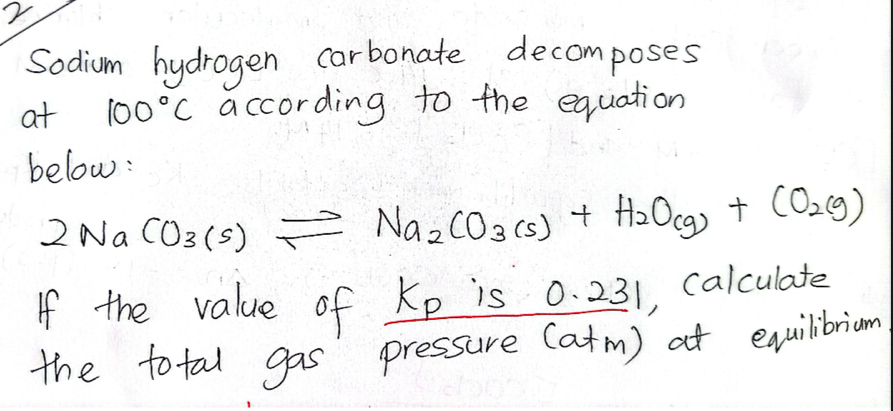 2
Sodium hydrogen carbonate decomposes
at 100°C according to the equation
below:
2 Na CO3 (s) ⇌ Na2 CO3 (s) + H2O(g) + CO2(g)
If the value of Kp is 0.231, calculate
the total gas pressure (atm) at equilibrium